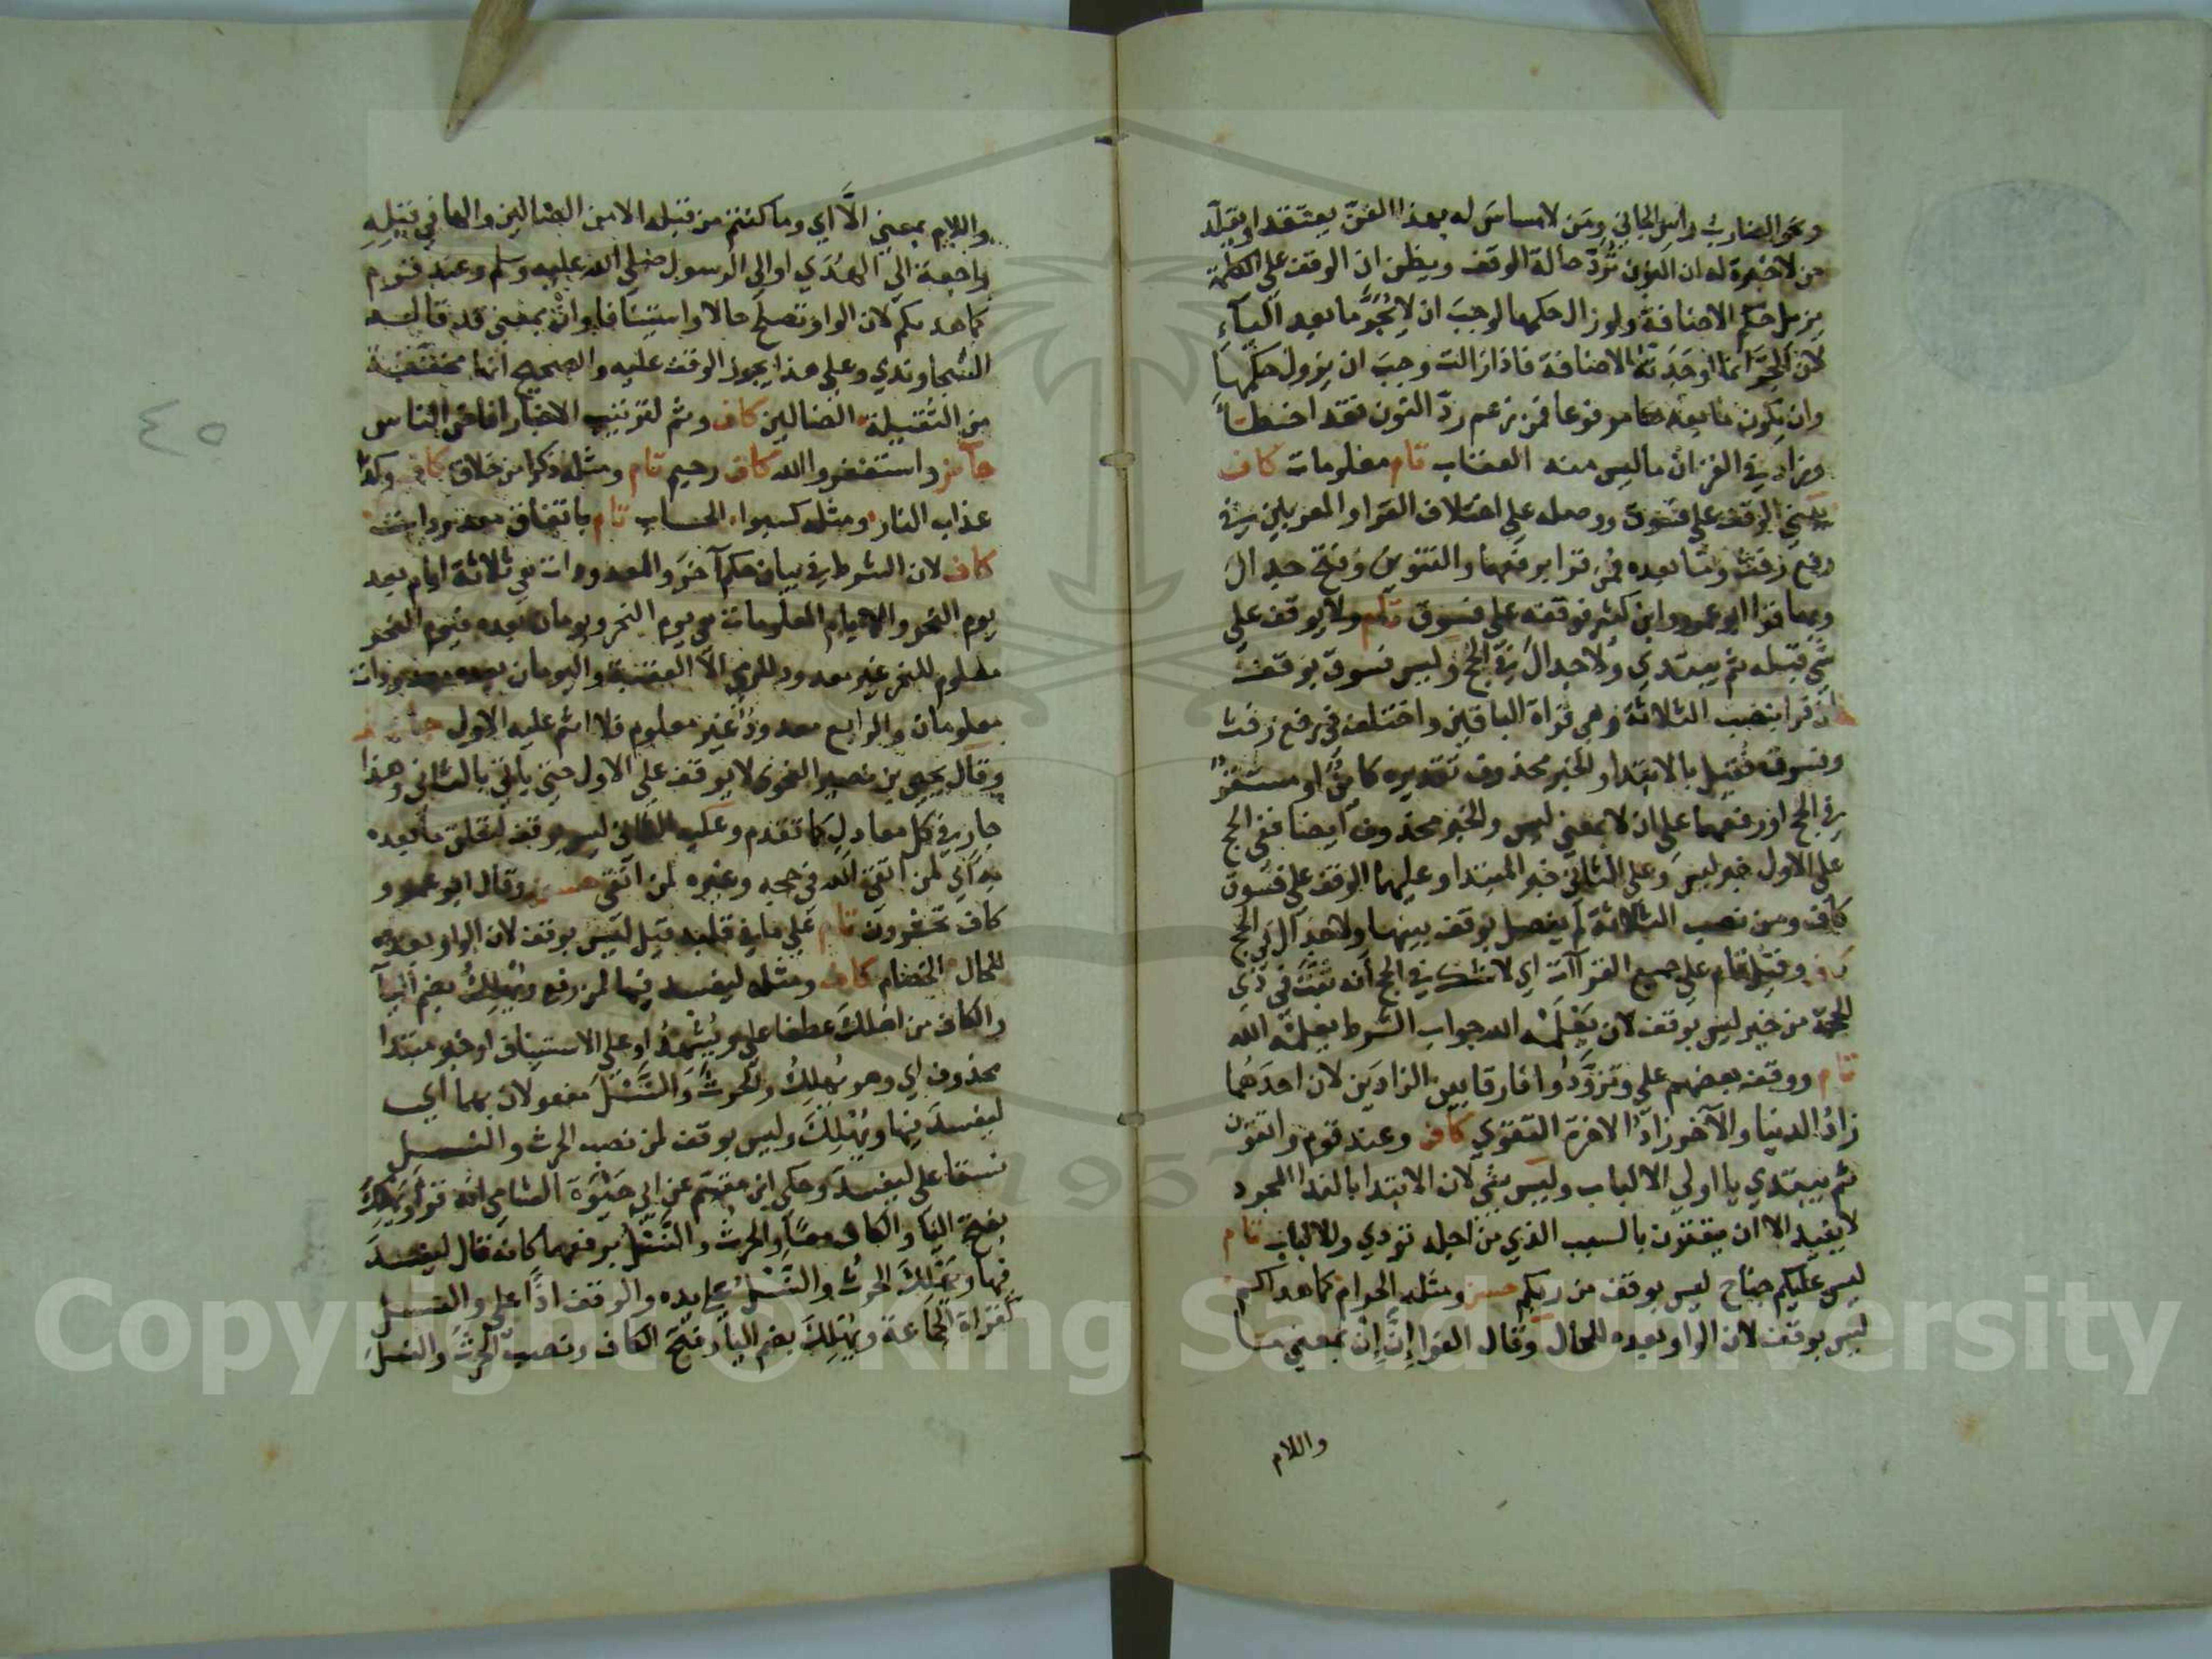 ونحو الضارب رأس الجاني ومن لا مساس له بهذا الفن يعتقد او يقلد
من لا خبرة له ان النون تُرَدّ حالة الوقف ويظن ان الوقف على الكلمة
يزيل حكم الاضافة ولو زال حكمها لوجب ان لا يُجرَّ ما بعد اليآء
لان الجرَّ انما اوجدته الاضافة فاذا زالت وجب ان يزول حكمها
وان يكون ما بعدها مرفوعا فمن زعم ردّ النون فقد اخطأ
وزاد في القران ما ليس منه العقاب تام معلومات كاف
يبني الوقف على فسوق ووصله على اختلاف القرا والمعربين في
رفع رفث وما بعده فمن قرا برفعهما والتنوين وفتح جدال
وبها قرا ابو عمرو وابن كثير فوقفه على فسوق تام ولا يوقف على
شي قبله ثم يبتدي ولا جدال في الحج وليس فسوق بوقف
لمن قرا بنصب الثلاثة وهي قراة الباقين واختلف في رفع رفث
وفسوق فقيل بالابتدا والخبر محذوف تقديره كائنٌ او مستقرٌ
في الحج او رفعهما على ان لا بمعني ليس والخبر محذوف ايضا ففي الحج
على الاول خبر ليس وعلى الثاني خبر المبتدا وعليهما الوقف على فسوق
كاف ومن نصب الثلاثة لم يفصل بوقف بينهما ولا جدال في الحج
كاف وقيل تام على جميع القراآت اي لا شك في الحج انه ثبت في ذي
الحجة من خير ليس بوقف لان يَعْلَمْه الله جواب الشرط يعلمه الله
تام ووقف بعضهم على وتزوَّدُوا فارقا بين الزادَين لان احدَهُما
زادُ الدنيا والآخر زادُ الاخرة التقوي كاف وعند قوم واتقون
ثم يبتدي يا اولي الالباب وليس بشي لان الابتدا بالندا المجرد
لا يفيد الا ان يقترن بالسبب الذي من اجله نودي والالباب تام
ليس عليكم جناح ليس بوقف من ربكم حسن ومثله الحرام كما هداكم
ليس بوقف لان الواو بعده للحال وقال الفرا إنَّ إنْ بمعني ما
واللام
واللام بمعني الَّا اي وما كنتم من قبله الا من الضالين والها في قبلِهِ
راجعة الي الهُدَي او الي الرسول صلي الله عليه وسلم وعند قوم
كما هديكم لان الواو تصلح حالا واستينافا وانْ بمعني قد قاله
السجاوندي وعلي هذا يجوز الوقف عليه والصحيح انها مخففة
من الثقيلة الضالين كاف وثم لترتيب الاخبار افاض الناس
جائز واستغفروا الله كاف رحيم تام ومثله ذكرا من خلاق كاف وكذا
عذاب النار ومثله كسبوا الحساب تام باتفاق معدودات
كاف لان الشرط في بيان حكم آخر والمعدودات هي ثلاثة ايام بعد
يوم النحر والايام المعلومات هي يوم النحر ويومان بعده فيوم النحر
معلوم للنحر غير معدود للرمي الّا العقبة واليومان بعده معدودان
معلومان والرابع معدودٌ غير معلوم فلا اثم عليه الاول جائز
وقال يحيى بن نصير النحوي لا يوقف علي الاول حتي ياتي بالثاني وهذا
جارٍ في كل معادل كما تقدم وعليه الثاني ليس بوقف لتعلق ما بعده
به اي لمن اتقي الله في حجه وغيره لمن اتقي حسن وقال ابو عمرو
كاف تحشرون تام علي ما في قلبه قيل ليس بوقف لان الواو بعده
للحال الخصام كاف ومثله ليفسد فيها لمن رفع ويُهْلِكُ بضم اليآ
والكاف من اهلك عطفا علي ويُشْهِدُ او علي الاستيناف او خبر مبتدا
محذوف اي وهو يُهْلِكُ والحَرثَ والنَّسْلَ مفعولان بهما اي
ليفسدَ فيها ويُهْلِكَ وليس بوقف لمن نصب الحرث والنسل
نسقا علي ليفسدَ وحكي ابن مقسم عن ابي حَيْوَة الشامي انه قرأ ويَهْلِكَ
بفتح اليا والكاف معًا والحرثُ والنَّسْلُ برفعهما كانه قال ليفسدَ
فيها ويَهْلِكَ الحرثُ والنَّسْلُ علي يده والوقف اذًا علي والنسل
كقراة الجماعة ويُهْلِكَ بضم اليا وفتح الكاف ونصب الحرثَ والنسلَ
٤٥
Copyright © King Saud University
1957